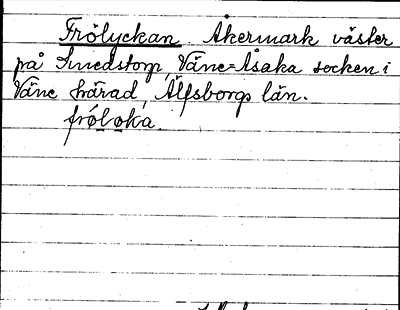 Frölyckan. Åkermark väster
på Smedstorp, Väne=Åsaka socken i
Väne härad, Älfsborgs län.
fróloka.